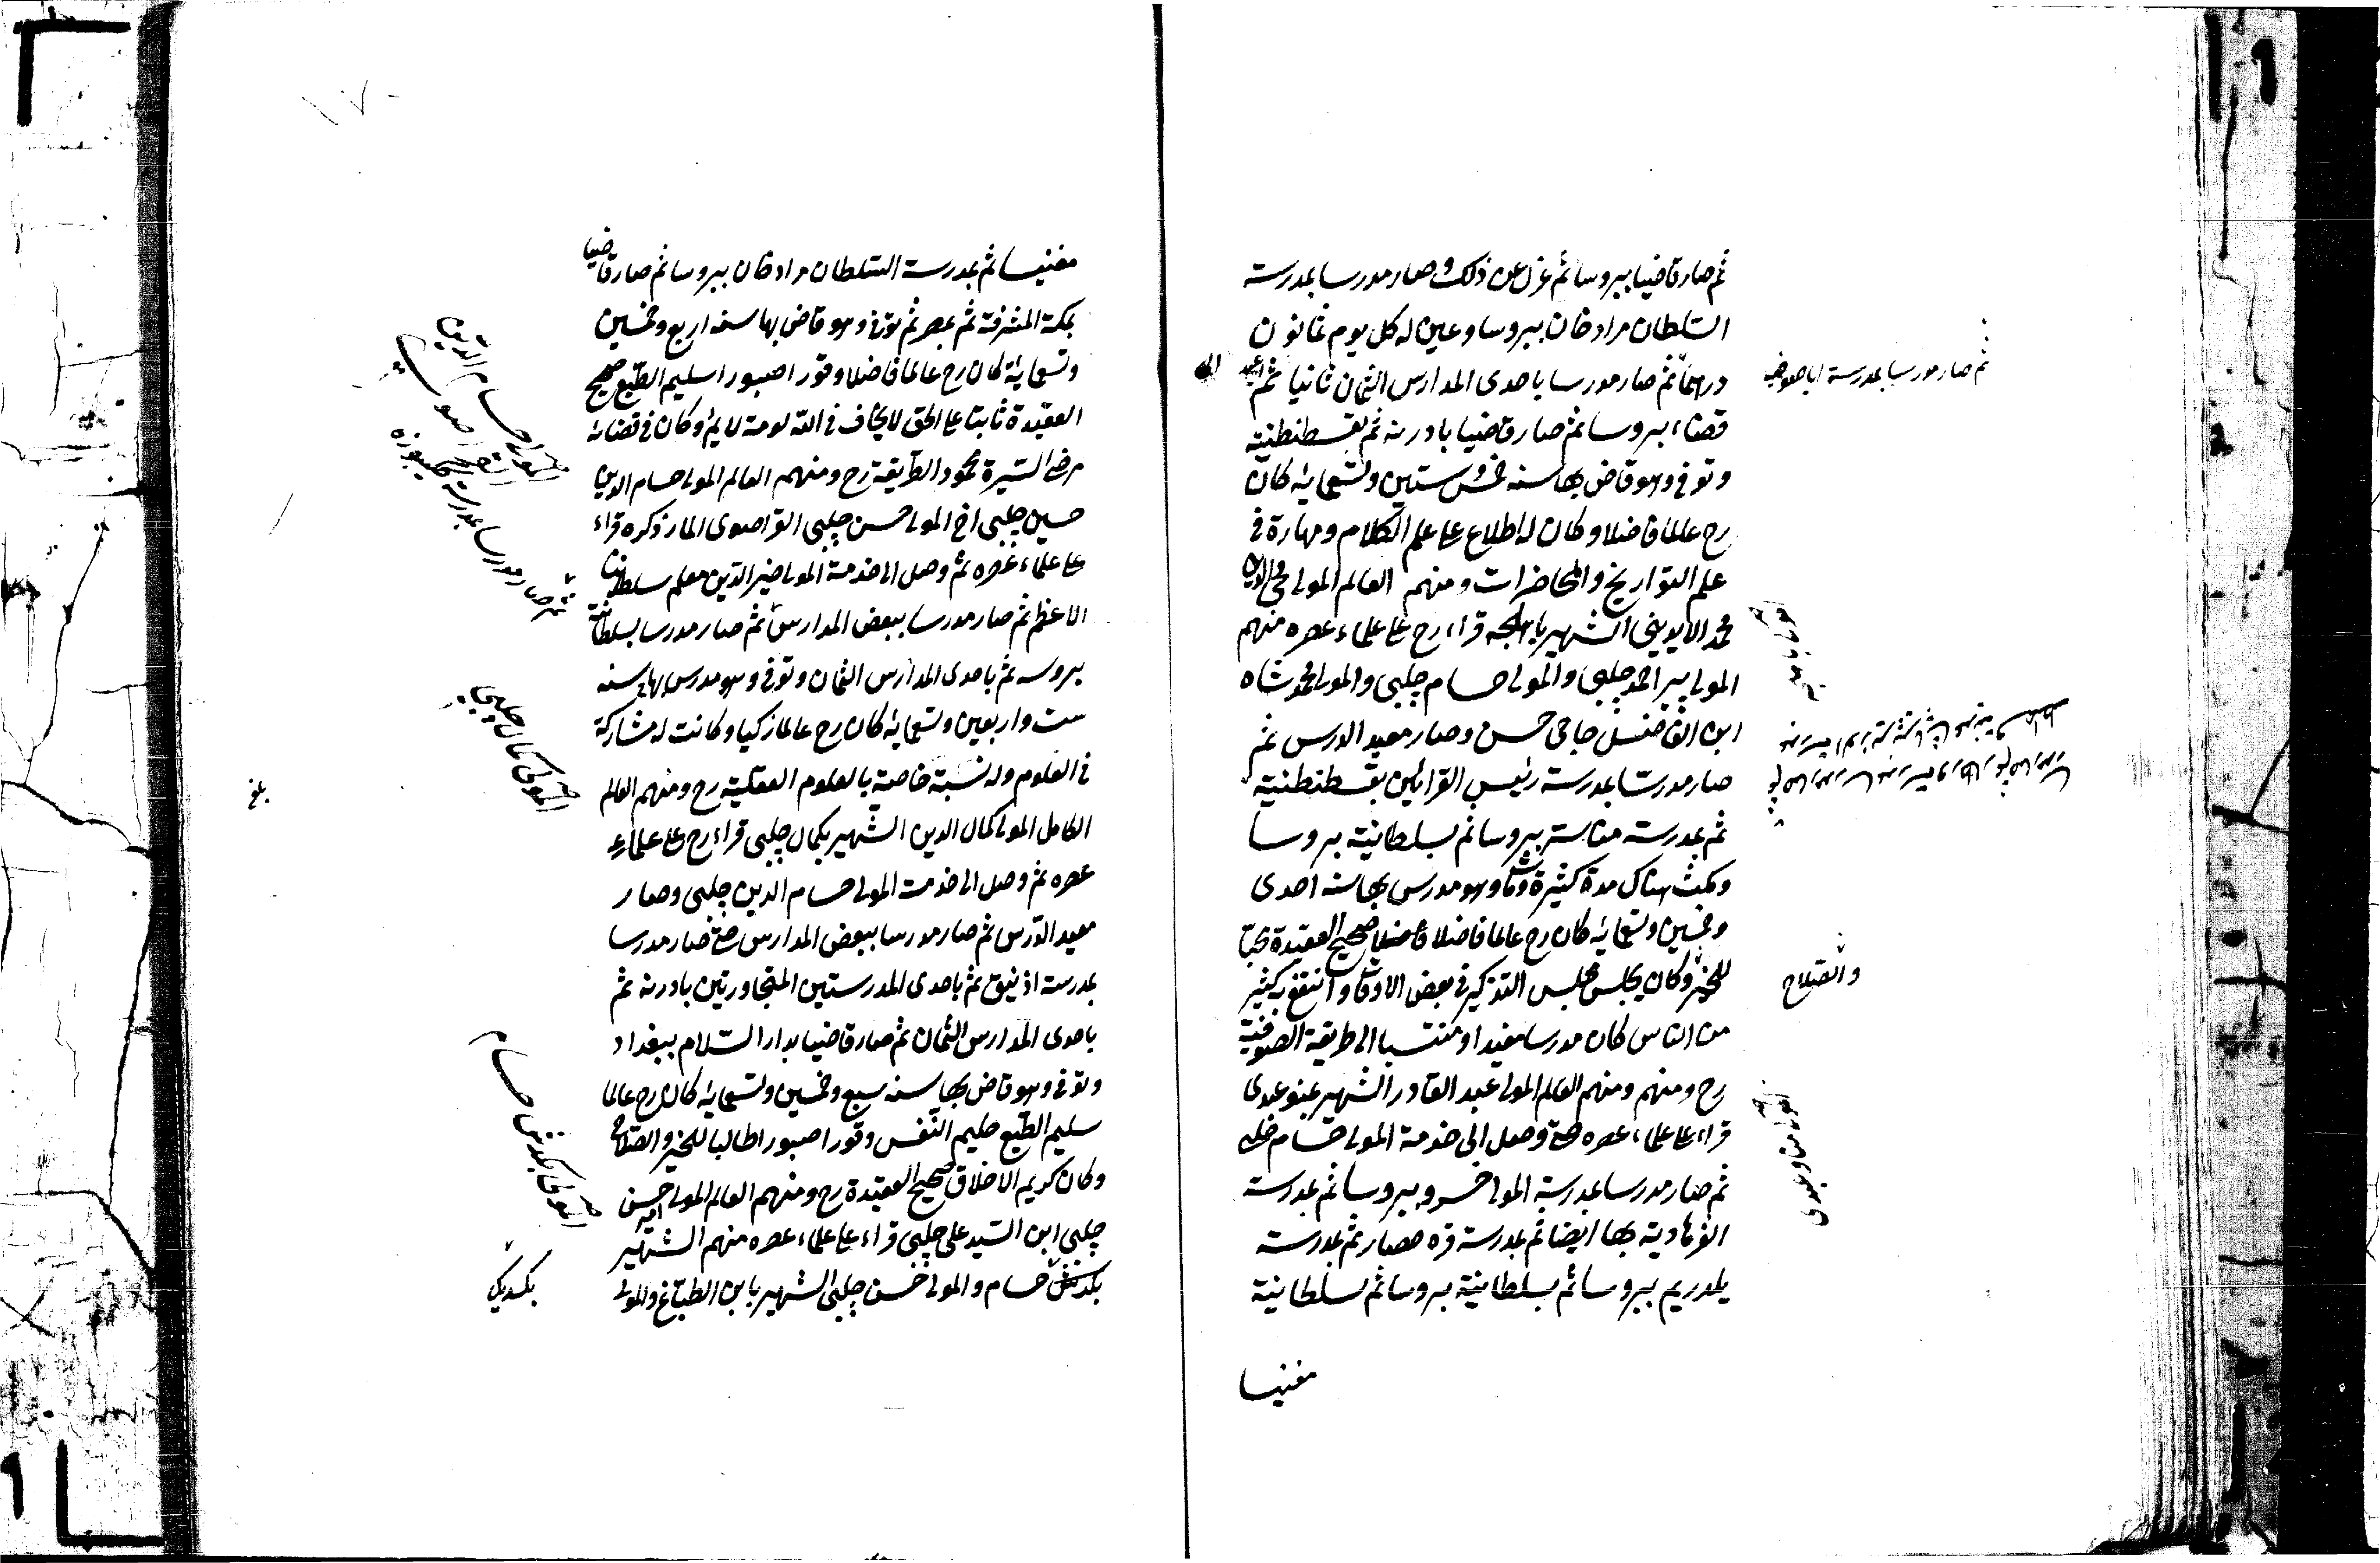 ثم صار قاضيا ببروسا ثم عزل عن ذلك وصار مدرسا بمدرسة
السلطان مراد خان ببروسا وعين له كل يوم ثمانون
درهما ثم صار مدرسا باحدى المدارس الثمان ثانيا ثم اعيد الى
ثم صار مدرسا بمدرسة اياصوفيه
قضاء بروسا ثم صار قاضيا بادرنه ثم بقسطنطنية
وتوفى وهو قاض بها سنه خمس وستين وتسعمايه كان
رح عالما فاضلا وكان له اطلاع على علم الكلام ومهارة في
علم التواريخ والمحاضرات ومنهم العالم المولى محي الدين
محمد الايديني الشهير باهلجه قراء رح على علماء عصره منهم
المولى بير احمد چلبى والمولى حسام چلبى والمولى محمد شاه
ابن الفاضل حاجى حسن وصار معيد الدرس ثم
صار مدرسا بمدرسة رئيس القرائين بقسطنطنية
ثم بمدرسة مناستر ببروسا ثم بسلطانية بروسا
ومكث هناك مدة كثيرة ومات وهو مدرس بها سنه احدى
وخمسين وتسعمايه كان رح عالما فاضلا صحيح العقيدة محبا
للخير وكان يجلس مجلس التذكير في بعض الاوقات وانتفع به كثير
والصلاح
من الناس كان مدرسا مفيدا ومنتسبا الى طريقة الصوفية
رح ومنهم ومنهم العالم المولى عبد القادر الشهير بمنو عبدى
قراء على علماء عصره حتى وصل الى خدمة المولى حسام چلبى
ثم صار مدرسا بمدرسة المولى خسرو ببروسا ثم بمدرسة
الفرهادية بها ايضا ثم بمدرسة قره حصار ثم بمدرسة
يلدريم ببروسا ثم بسلطانية بروسا ثم بسلطانية
مغنيسا
مغنيسا ثم بمدرسة السلطان مراد خان ببروسا ثم صار قاضيا
بمكة المشرفة ثم بمصر ثم توفى وهو قاض بها سنه اربع وخمسين
وتسعمايه كان رح عالما فاضلا وقورا صبورا سليم الطبع صحيح
العقيدة ثابتا على الحق لا يخاف في الله لومة لائم وكان في قضائه
مرضى السيرة محمود الطريقة رح ومنهم العالم المولى حسام الدين
حسين چلبى اخ المولى حسن چلبى القراصوى المار ذكره قراء
على علماء عصره ثم وصل الى خدمة المولى خير الدين معلم سلطاننا
الاعظم ثم صار مدرسا ببعض المدارس ثم صار مدرسا بسلطانية
بروسه ثم باحدى المدارس الثمان وتوفى وهو مدرس بها سنه
ست واربعين وتسعمايه كان رح عالما زكيا وكانت له مشاركة
في العلوم وله نسبة خاصة بالعلوم العقلية رح ومنهم العالم
الكامل المولى كمال الدين الشهير بكمال چلبى قراء رح على علماء
عصره ثم وصل الى خدمت المولى حسام الدين چلبى وصار
معيد الدرس ثم صار مدرسا ببعض المدارس حتى صار مدرسا
بمدرسة ازنيق ثم باحدى المدرستين المتجاورتين بادرنه ثم
باحدى المدارس الثمان ثم صار قاضيا بدار السلام ببغداد
وتوفى وهو قاض بها سنه سبع وخمسين وتسعمايه كان رح عالما
سليم الطبع حليم النفس وقورا صبورا طالبا للخير والصلاح
وكان كريم الاخلاق صحيح العقيدة رح ومنهم العالم المولى امير حسن
چلبى ابن السيد على چلبى قراء على علماء عصره منهم الشهير
بكدنش حسام والمولى حسن چلبى الشهير بابن الطباخ والمولى
المولى حسام الدين
ثم صار مدرسا بمدرسة ككبوزه
المولى كمال چلبى
بلغ
المولى بكدنش حسام